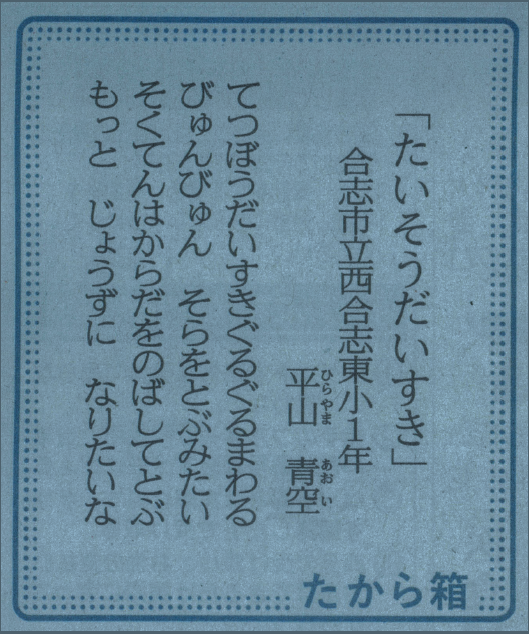 「たいそうだいすき」
合志市立西合志東小1年
平山　青空
ひらやま　あおい
てつぼうだいすきぐるぐるまわる
びゅんびゅん　そらをとぶみたい
そくてんはからだをのばしてとぶ
もっと　じょうずに　なりたいな
たから箱